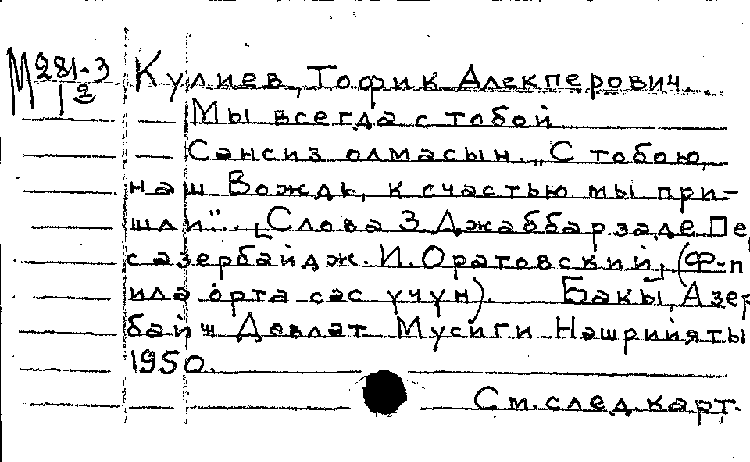 М 281-3 Кулиев, Тофик Алекперович.
12
Мы всегда с тобой
Сансиз олмасын. „С тобою,
наш Вождь, к счастью мы при-
шли". [Слова З. Джаббарзаде. Пе
с азербайдж. И. Оратовский]. (Ф-п
ила орта сас учун). Бакы, Азер
байҹ Довлат Мусиги Нашрийяты
1950.
См. след. карт.